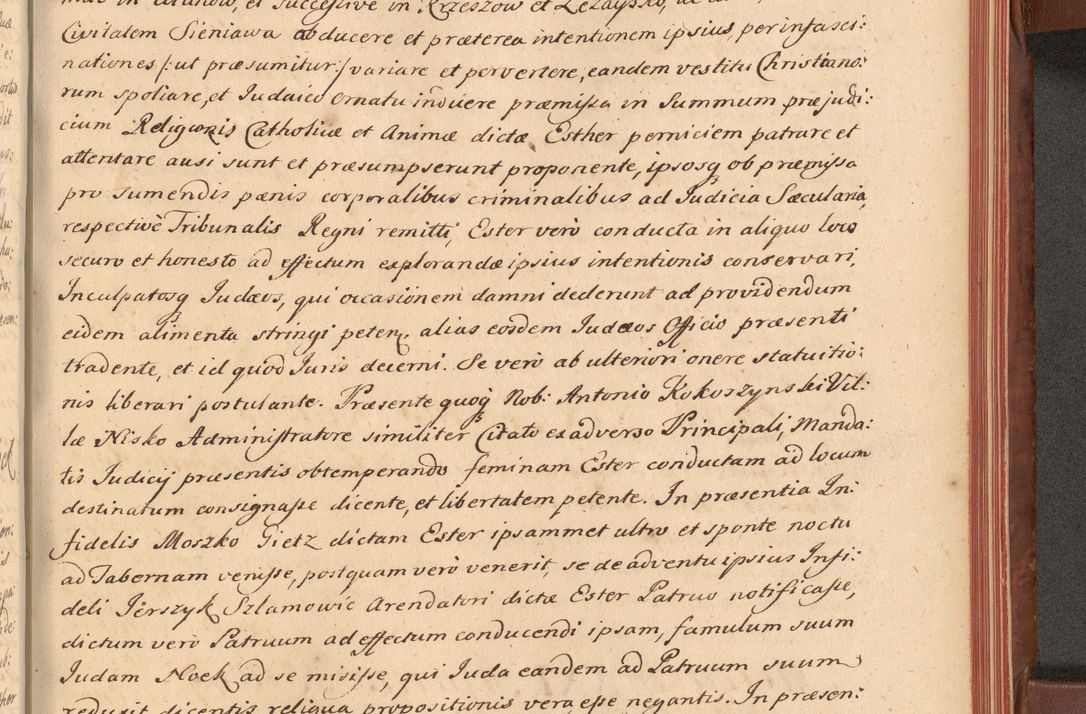 in Ulanow, et Successive in Krzeszow et Lezaysko,
Civitatem Sieniawa abducere et præterea intentionem ipsius per infasci:
nationes /: ut præsumitur:/ variare et pervertere, eandem vestitu Christiano:
rum spoliare, et Iudaico ornatu induere præmissa in Summum præjudi:
cium Religionis Catholicæ et Animæ dictæ Esther perniciem patrare et
attentare ausi sunt et præsumpserunt proponente, ipsosq ob præmissa
pro sumendis pænis corporalibus criminalibus ad Iudicia Sæcularia,
respectivè Tribunalis Regni remitti, Ester verò conducta in aliquo loco
securo et honesto ad effectum explorandæ ipsius intentionis conservari,
Inculpatosq Iudæos, qui occasionem damni dederunt ad providendum
eidem alimenta stringi peten. alias eosdem Iudæos Officio præsenti
tradente, et id quod Iuris decerni. Se verò ab ulteriori onere statuitio:
nis liberari postulante. Præsente quoq Nob: Antonio Kokoszynski Vil:
læ Nisko Administratore similiter Citato ex adverso Principali, Manda:
tis Iudicij præsentis obtemperando feminam Ester conductam ad locum
destinatum consignasse dicente, et libertatem petente. In præsentia In:
fidelis Moszko Gietz dictam Ester ipsammet ultro et sponte noctu
ad Tabernam venisse, postquam verò venerit, se de adventu ipsius Infi:
deli Jerszyk Szlamowic Arendatori dictæ Ester Patruo notificasse,
dictum verò Patruum ad effectum conducendi ipsam, famulum suum
Iudam Noek ad se misisse, qui Iuda eandem ad Patruum suum
reduxit dicentis reliqua propositionis vera esse negantis. In præsen: